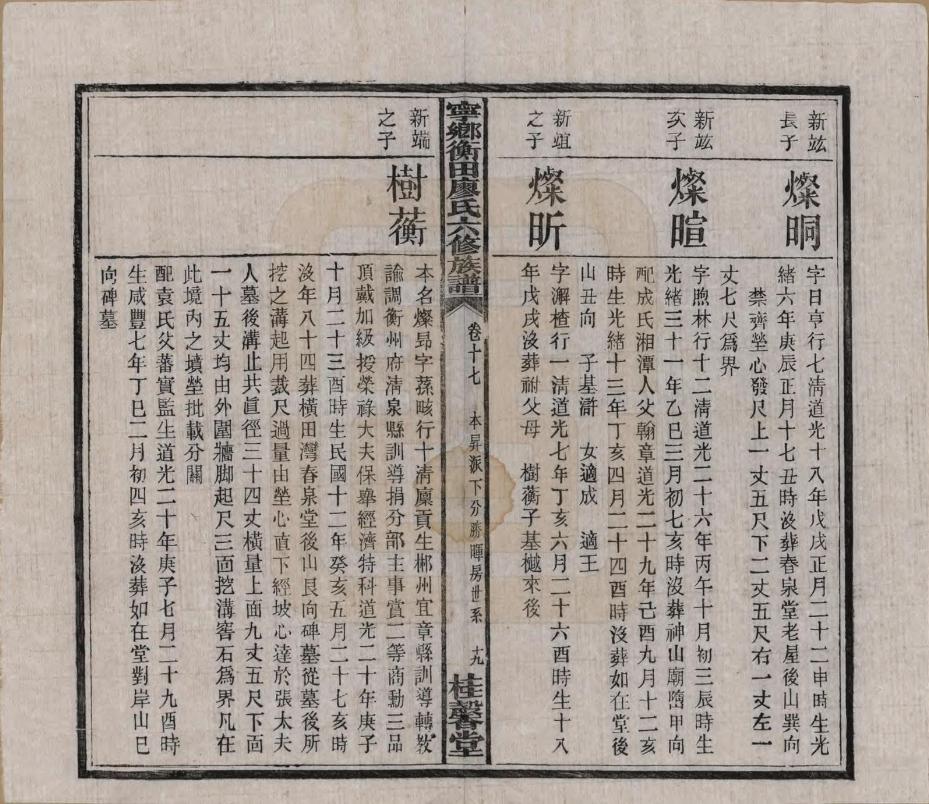 新竑
長子
燦晍
字日亨行七清道光十八年戊戌正月二十二申時生光
緒六年庚辰正月十七丑時沒葬春泉堂老屋後山巽向
禁齊塋心發尺上一丈五尺下二丈五尺右一丈左一
丈七尺爲界
新竑
亥子
燦暄
字煦林行十二清道光二十六年丙午十月初三辰時生
光緒三十一年乙巳三月初七亥時沒葬神山廟隋甲向
配成氏湘潭人父翰章道光二十九年己酉九月十二亥
時生光緒十三年丁亥四月二十四酉時沒葬如在堂後
山丑向 子基滸 女適成 適王
新竩
之子
燦昕
字澥楂行一清道光七年丁亥六月二十六酉時生十八
年戊戌沒葬祔父母 樹蘅子基樾來後
寧鄉衡田廖氏六修族譜
卷十七
本昇派下分勝暉房世系
十九
桂馨堂
新端
之子
樹蘅
本名燦昂字蓀畡行十清廩貢生郴州宜章縣訓導轉敎
諭調衡州府清泉縣訓導捐分部主事賞二等商勳三品
頂戴加級授榮祿大夫保舉經濟特科道光二十年庚子
十月二十三酉時生民國十二年癸亥五月二十七亥時
沒年八十四葬橫田灣春泉堂後山艮向碑墓從墓後所
挖之溝起用裁尺過量由塋心直下經坡心達於張太夫
人墓後溝止共直徑三十四丈橫量上面九丈五尺下面
一十五丈均由外圍牆脚起尺三面挖溝窖石爲界凡在
此境內之墳塋批載分關
配袁氏父蕃實監生道光二十年庚子七月二十九酉時
生咸豐七年丁巳二月初四亥時沒葬如在堂對岸山巳
向碑墓